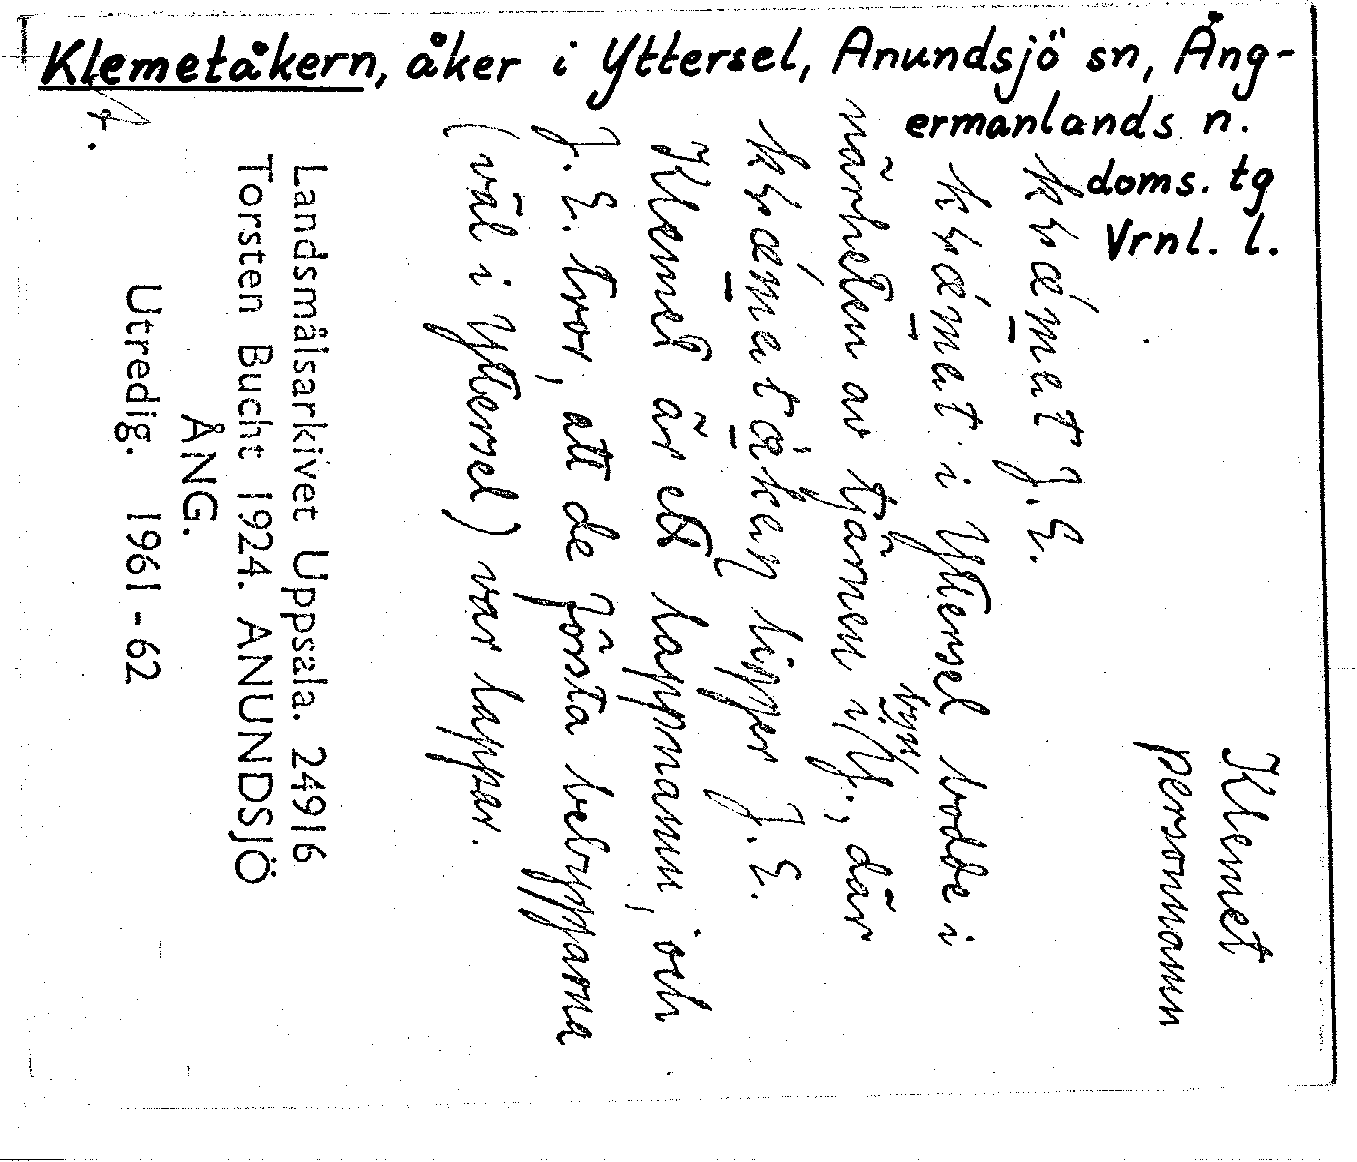 Klemetåkern, åker i Yttersel, Anundsjö sn, Ång-
ermanlands n.
doms. tg
Vrnl. l.
Klemet
personnamn
J. E.
i Yttersel bodde i
närheten av tjärnen i Y:s byn, där
ligger J. E.
Klemet är ett lappnamn, och
J. E. tror, att de första bebyggarna
(väl i Yttersel) var lappar.
Landsmålsarkivet Uppsala. 24916
Torsten Bucht 1924. ANUNDSJÖ
ÅNG.
Utredig. 1961-62